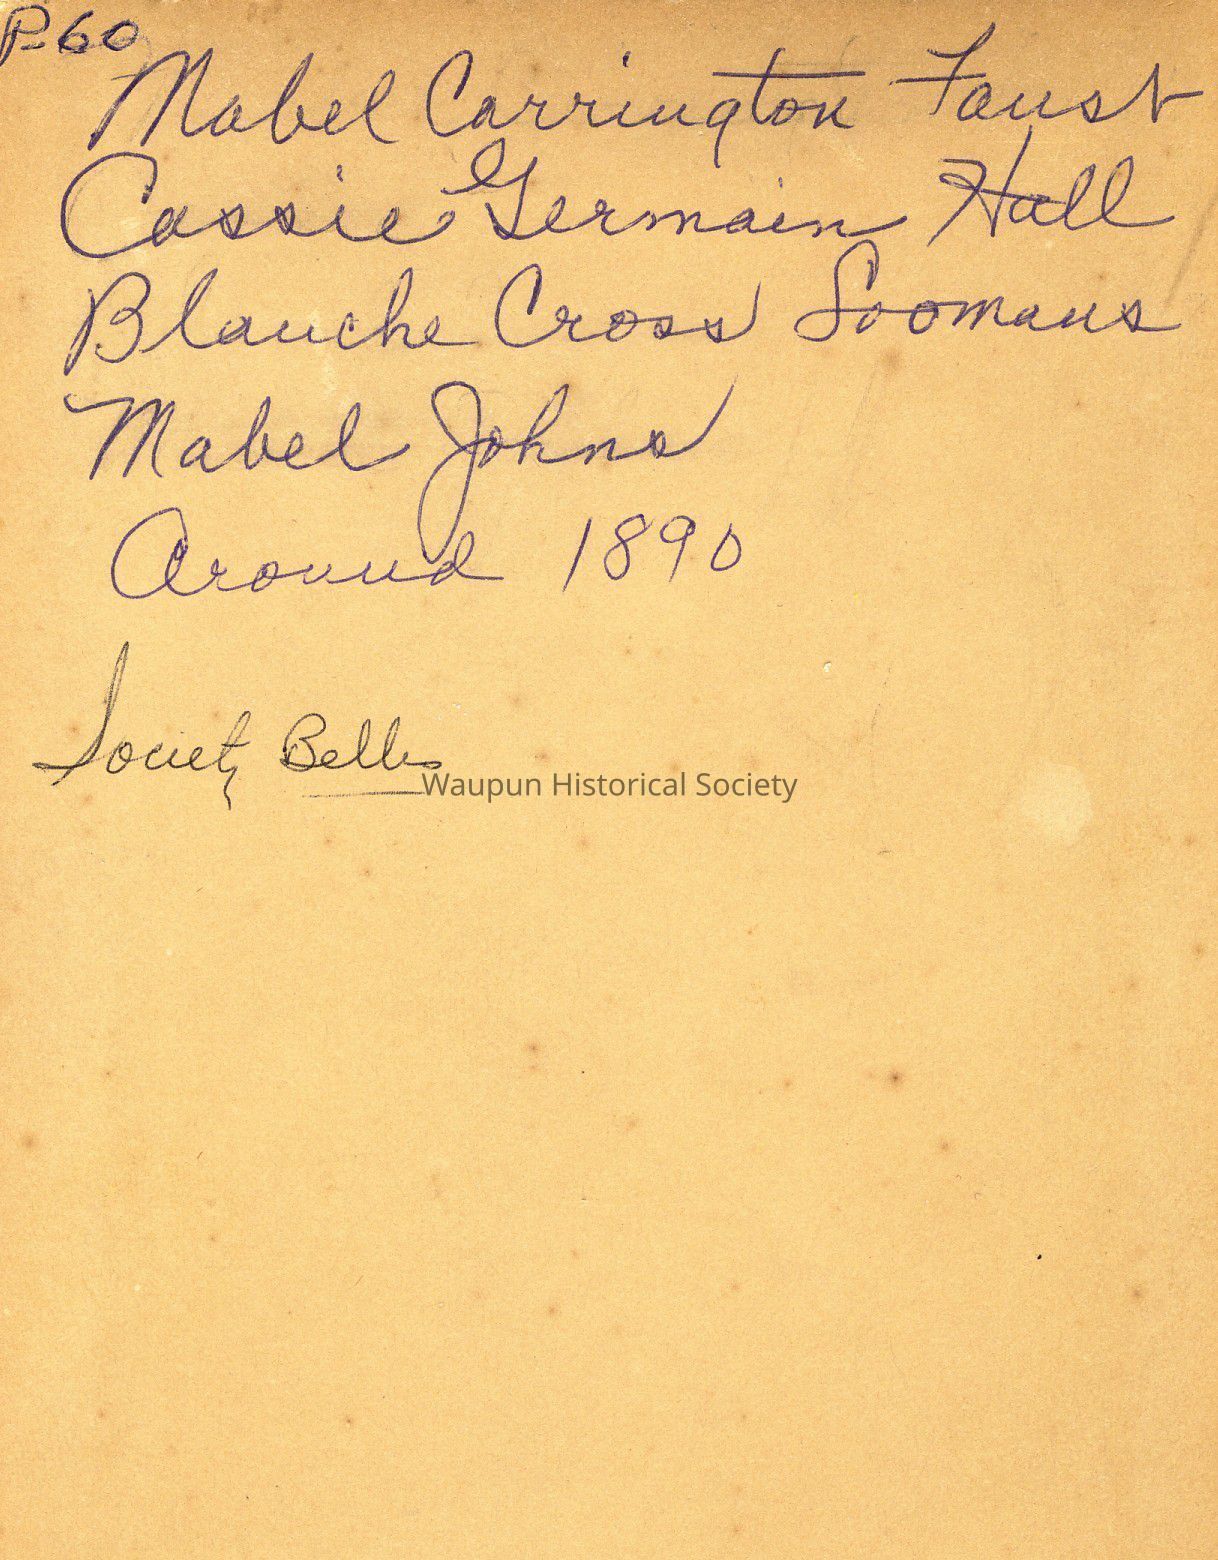 P-60
Mabel Carrington Faust
Cassie Germain Hall
Blanche Cross Loomans
Mabel Johns
Around 1890
Society Belles
Waupun Historical Society